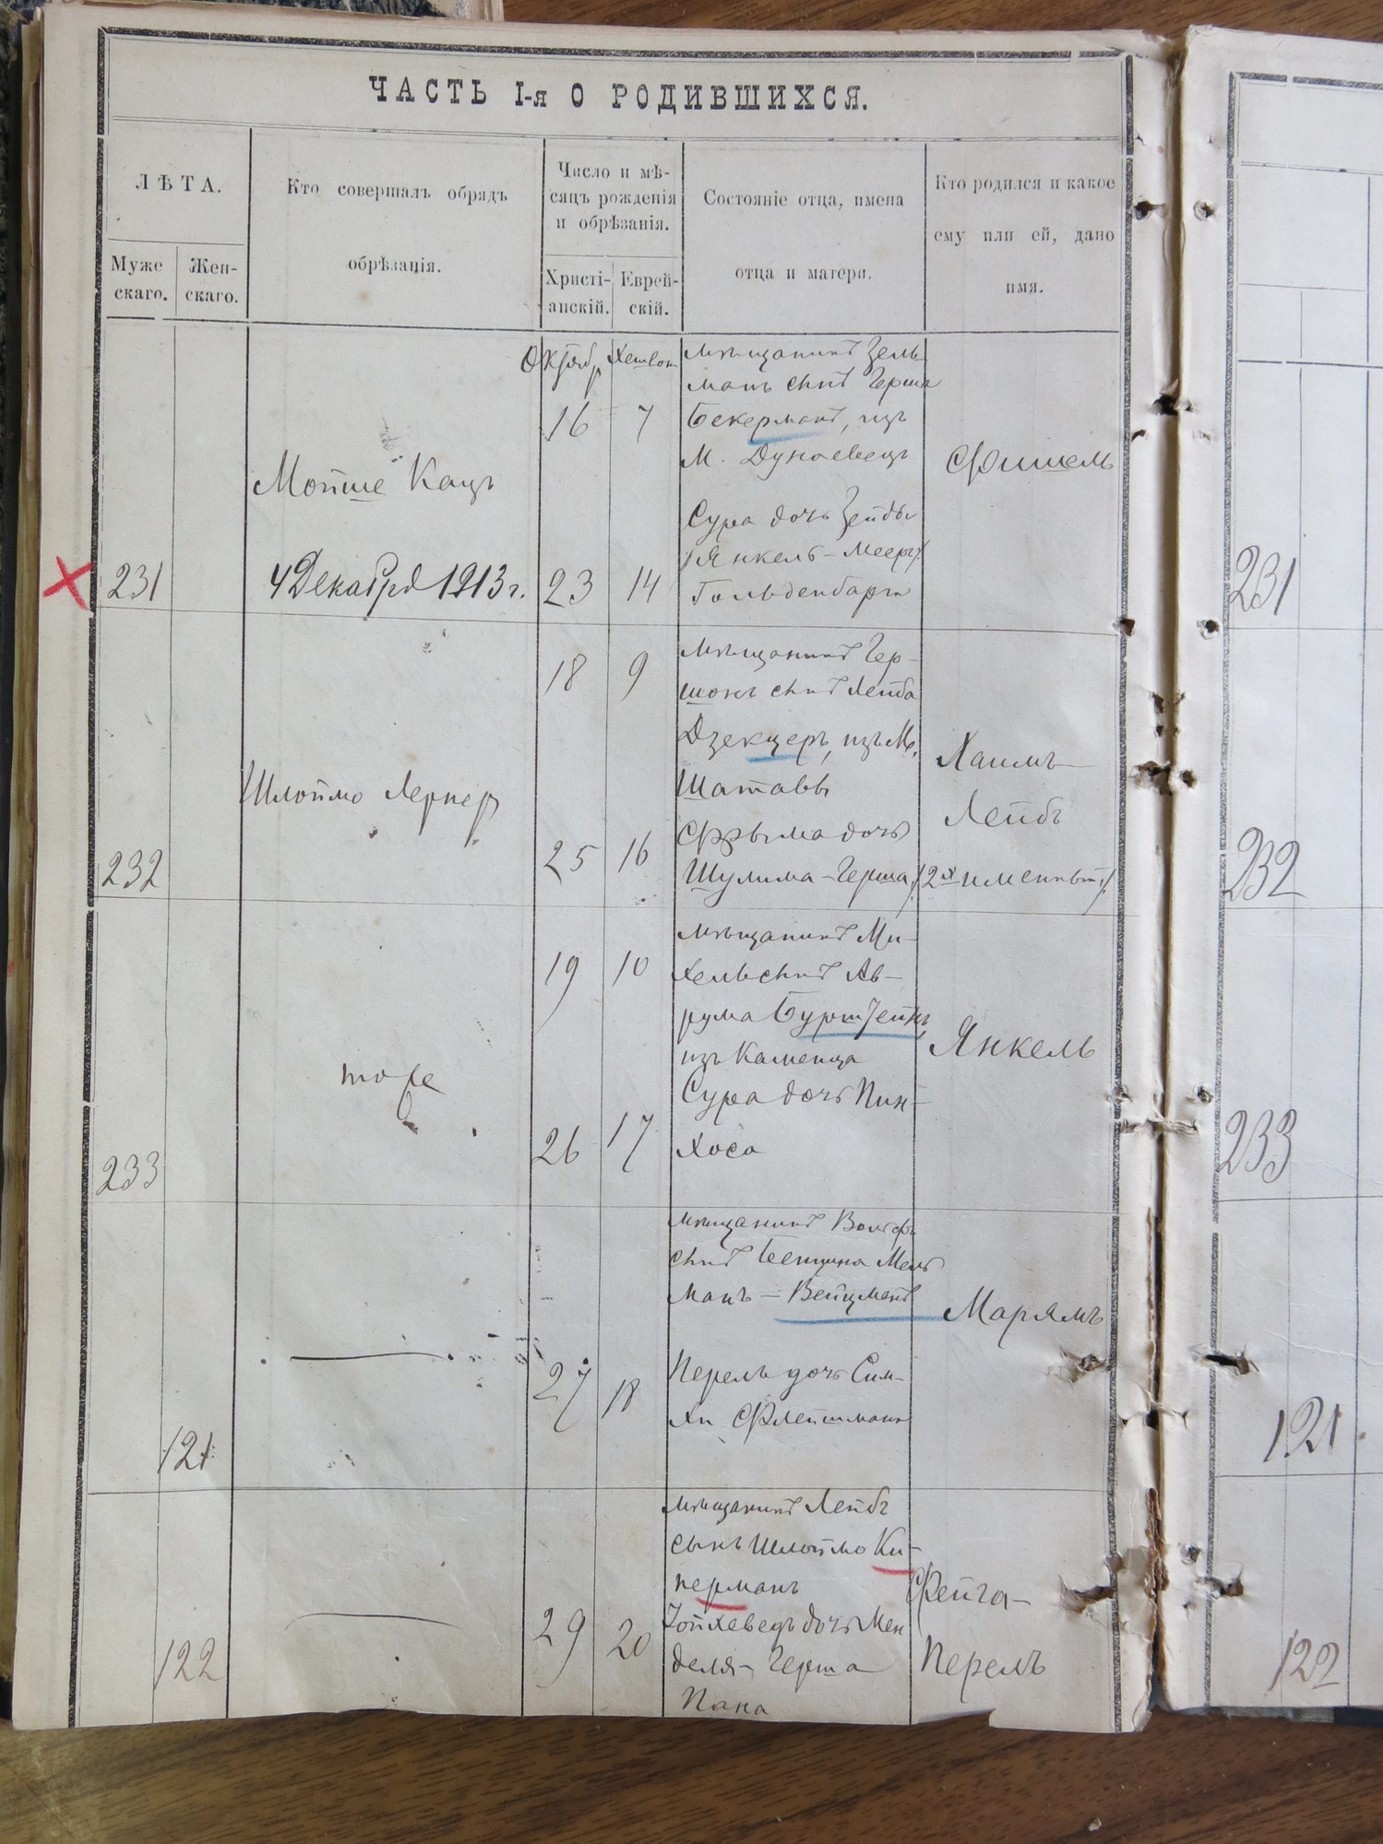 ЧАСТЬ I-я О РОДИВШИХСЯ.
ЛѢТА.
Муже
скаго.
Жен-
скаго.
Кто совершалъ обрядъ
обрѣзація.
Число и мѣ-
сяцъ рожденія
и обрѣзанія.
Христі-
анскій.
Еврей-
скій.
Состояніе отца, имена
отца и матери.
Кто родился и какое
ему или ей, дано
имя.
231
Мойше Кацъ
4 Декабря 1913 г.
Октябр
16
23
Хешвон
7
14
мѣщанинъ Зель
манъ сынъ Герша
Бекерманъ, изъ
м. Дунаевецъ
Сура дочь Зейды
/Янкель-Меера/
Гольденбарга
Фишель
231
232
Шлоймо Лернер
18
25
9
16
мѣщанинъ Гер-
шонъ сынъ Лейба
Дзекцеръ, изъ М.
Шатавы
Фрыма дочь
Шулима-Герша
Хаимъ-
Лейбъ
/:2х именный:/
232
233
тоже
19
26
10
17
мѣщанинъ Ми-
хель сынъ Ав-
рума Бурштейнъ,
изъ Каменца
Сура дочь Пин-
хоса
Янкель
233
121
27
18
мѣщанинъ Вольфъ
сынъ Бенциона Мель
манъ - Вейцманъ
Перель дочь Сим-
хи Флейшмана
Марямъ
121
122
29
20
мѣщанинъ Лейбъ
сынъ Шлоймо Ки-
перманъ
Іойхеведъ дочь Мен
деля-Герша
Пана
Фейга-
Перель
122